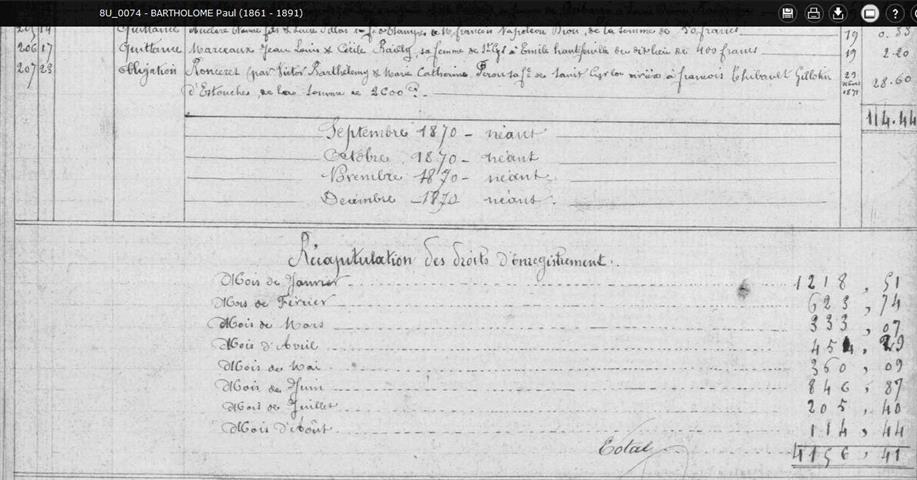 8U_0074 - BARTHOLOME Paul (1861 - 1891)
205 14 Quittance 50 francs 19 0.55
206 17 Quittance Marceaux Jean Louis & Cécile Bailly, sa femme de St Cyr à Emile hautefeuille du dit lieu de 400 francs 19 2.20
207 23 Obligation Ronceret (par Victor Barthélemy & Marie Catherine sa fe de Saint Cyr à francois Thibault Gillotin 1871 28.60
d'Estouches, de la somme de 2600 f.
114.44
Septembre 1870 - néant
Octobre 1870 - néant
Nvembre 1870 - néant.
Décembre - 1870 néant.
Récapitulation des droits d'enregistrement.
Mois de Janvier 1218,51
Mois de Février 623,74
Mois de Mars 333,07
Mois d'Avril 454,29
Mois de Mai 360,09
Mois de Juin 846,87
Mois de Juillet 205,40
Mois d'Août 114,44
Total 4156,41